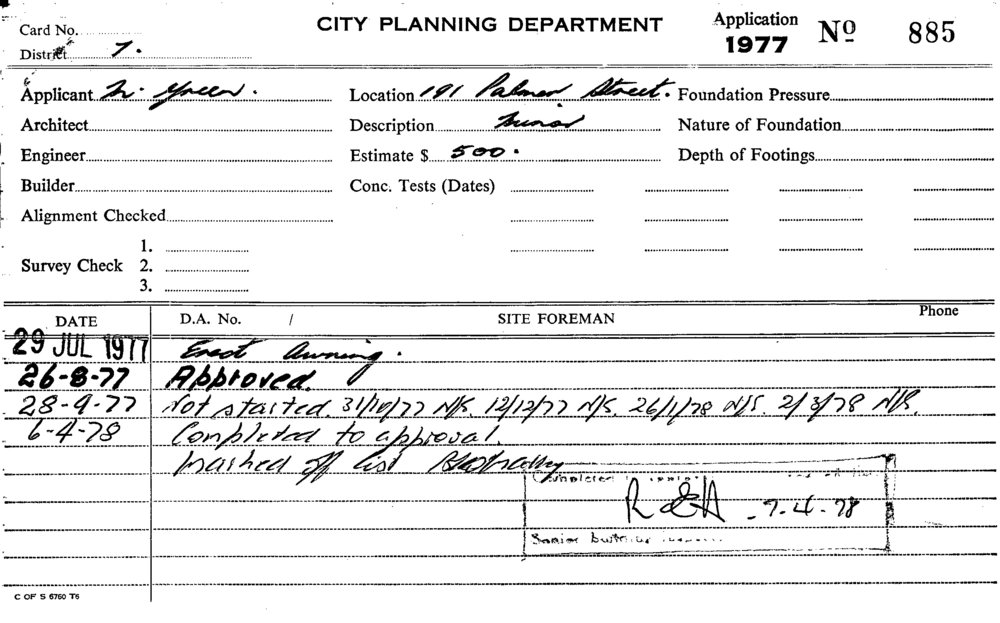 CITY PLANNING DEPARTMENT
Application 1977 Nº 885
Card No.
District 7.
Applicant Mr. Green. Location 191 Palmer Street. Foundation Pressure
Architect Description Minor Nature of Foundation
Engineer Estimate $ 500. Depth of Footings
Builder Conc. Tests (Dates)
Alignment Checked
Survey Check 1. 2. 3.
DATE D.A. No. / SITE FOREMAN Phone
29 JUL 1977 Erect Awning.
26-8-77 Approved.
28-9-77 Not started. 31/10/77 N/S. 12/12/77 N/S. 26/1/78 N/S. 2/3/78 N/S.
6-4-78 Completed to approval.
Marked off list
Completed
R 7-4-78
Senior
C OF S 6760 T6